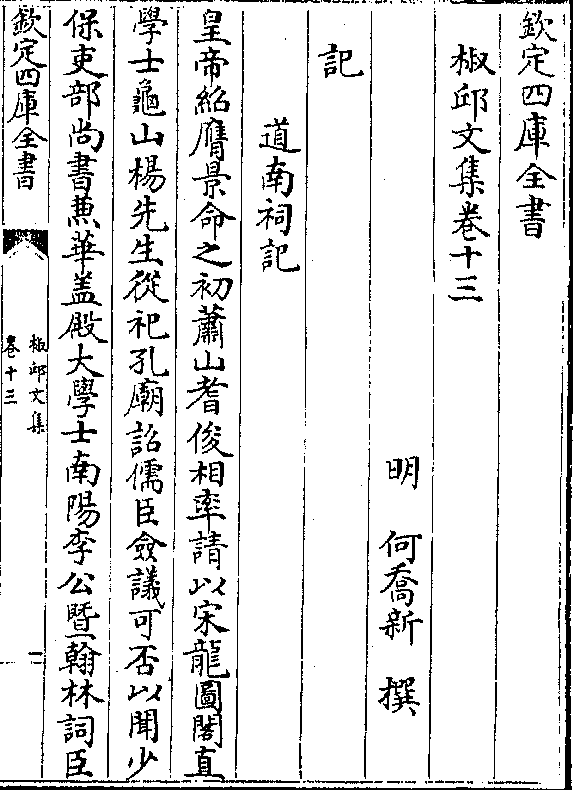 欽定四庫全書
椒邱文集卷十三
明 何喬新 撰
記
道南祠記
皇帝紹膺景命之初蕭山耆俊相率請以宋龍圖閣直
學士龜山楊先生從祀孔廟詔儒臣僉議可否以聞少
保吏部尚書兼華盖殿大學士南陽李公暨翰林詞臣
欽定四庫全書
椒邱文集
卷十三
一